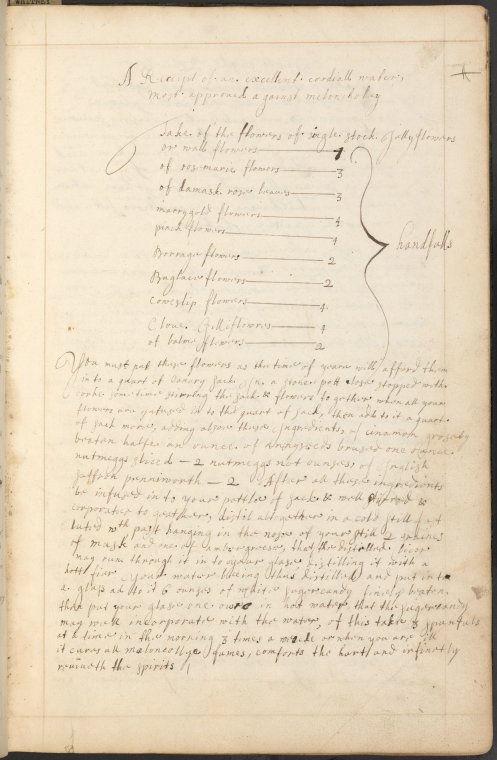 WHITNEY
A Receipt of an excellent cordiall water,
most approved against meloncholey
Take of the flowers of single stock Gellyflowers
or wall flowers
of rosemarie flowers 3
of damask rose leaves 3
marrygold flowers 4
pinck flowers 4
Borrage flowers 2
Buglace flowers 2
Cowslip flowers 4
Clove Gilliflowres 4
of balme flowers 2
handfulls
You must put these flowers as the time of yeare will afford them
into a quart of Canary sack, in a stone pott close stopped with
corke some time stirring the sack & flowers together when all your
flowers are infused in to the quart of sack, then add to it a quart
of sack more, adding alsoe these Ingredients, of cinamon grosely
beaten halfe an ounce, of brused one ounce
nutmeggs sliced - 2 nutmeggs not ounses, of English
saffron penniworth - 2 After all these ingredients
be infused in to your pottle of sack & well stirred &
corporated together, distil altogether in a cold still
luted wth past hanging in the nose of your still 2 graines
of musk and one of ambergreese, that the distilled licor
may run through it in to your glase distilling it with a
hott fier your water being thus distilled and put into
a glass ad to it 6 ounses of white sugercandy finely beaten,
than put your glase one oure in hot water that the sugercandy
may well incorporate with the water, of this take 3 spunfuls
at a time in the morning 3 times a weeke or when you are ill
it cures all meloncollye fumes, comforts the hart and infinetly
reviveth the spirits